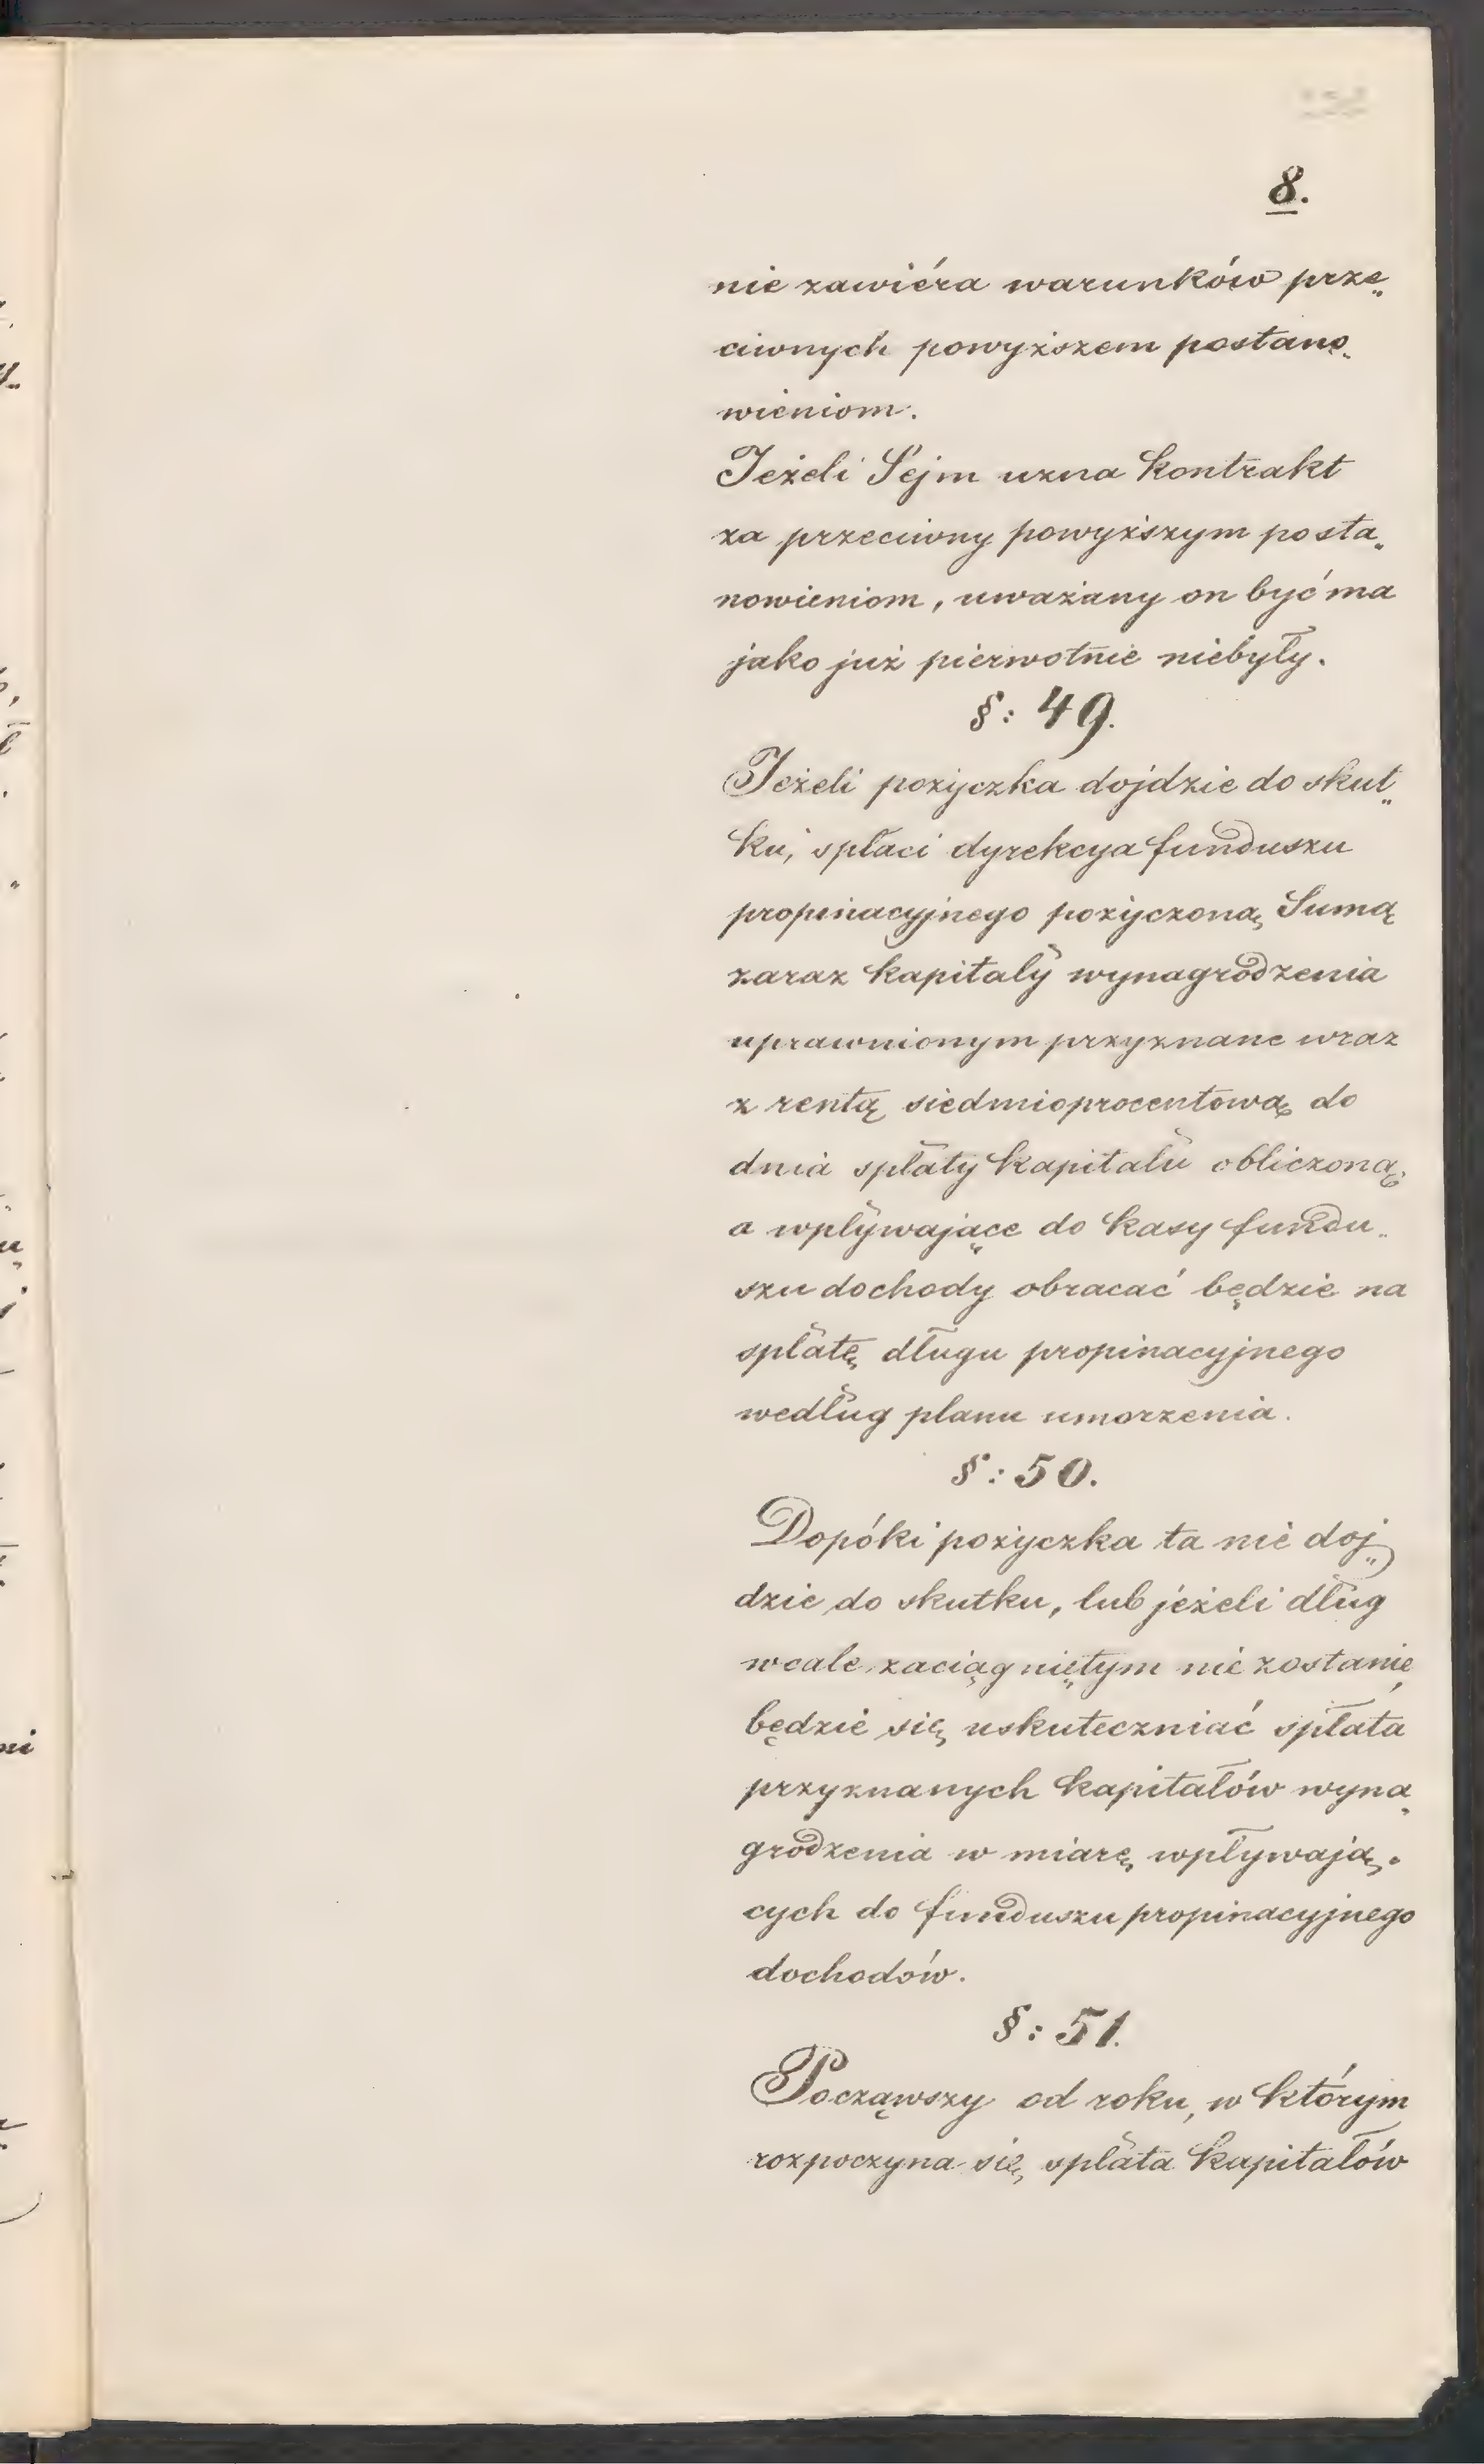 8.
nie zawiéra warunków prze„
ciwnych powyższem postano„
wieniom.
Jeżeli Sejm uzna kontrakt
za przeciwny powyższym posta„
nowieniom, uważany on być ma
jako już pierwotnie niebyły.
§: 49.
Jeżeli pożyczka dojdzie do skut„
ku, spłaci dyrekcya funduszu
propinacyjnego pożyczoną Sumą
zaraz kapitały wynagrodzenia
uprawnionym przyznane wraz
z rentą siedmioprocentową do
dnia spłaty kapitału obliczoną,
a wpływające do kasy fundu„
szu dochody obracać będzie na
spłatę długu propinacyjnego
według planu umorzenia.
§: 50.
Dopóki pożyczka ta nie doj„
dzie do skutku, lub jeżeli dług
wcale zaciągniętym nie zostanie,
będzie się uskuteczniać spłata
przyznanych kapitałów wyna„
grodzenia w miarę wpływają„
cych do funduszu propinacyjnego
dochodów.
§: 51.
Począwszy od roku, w którym
rozpoczyna się spłata kapitałów